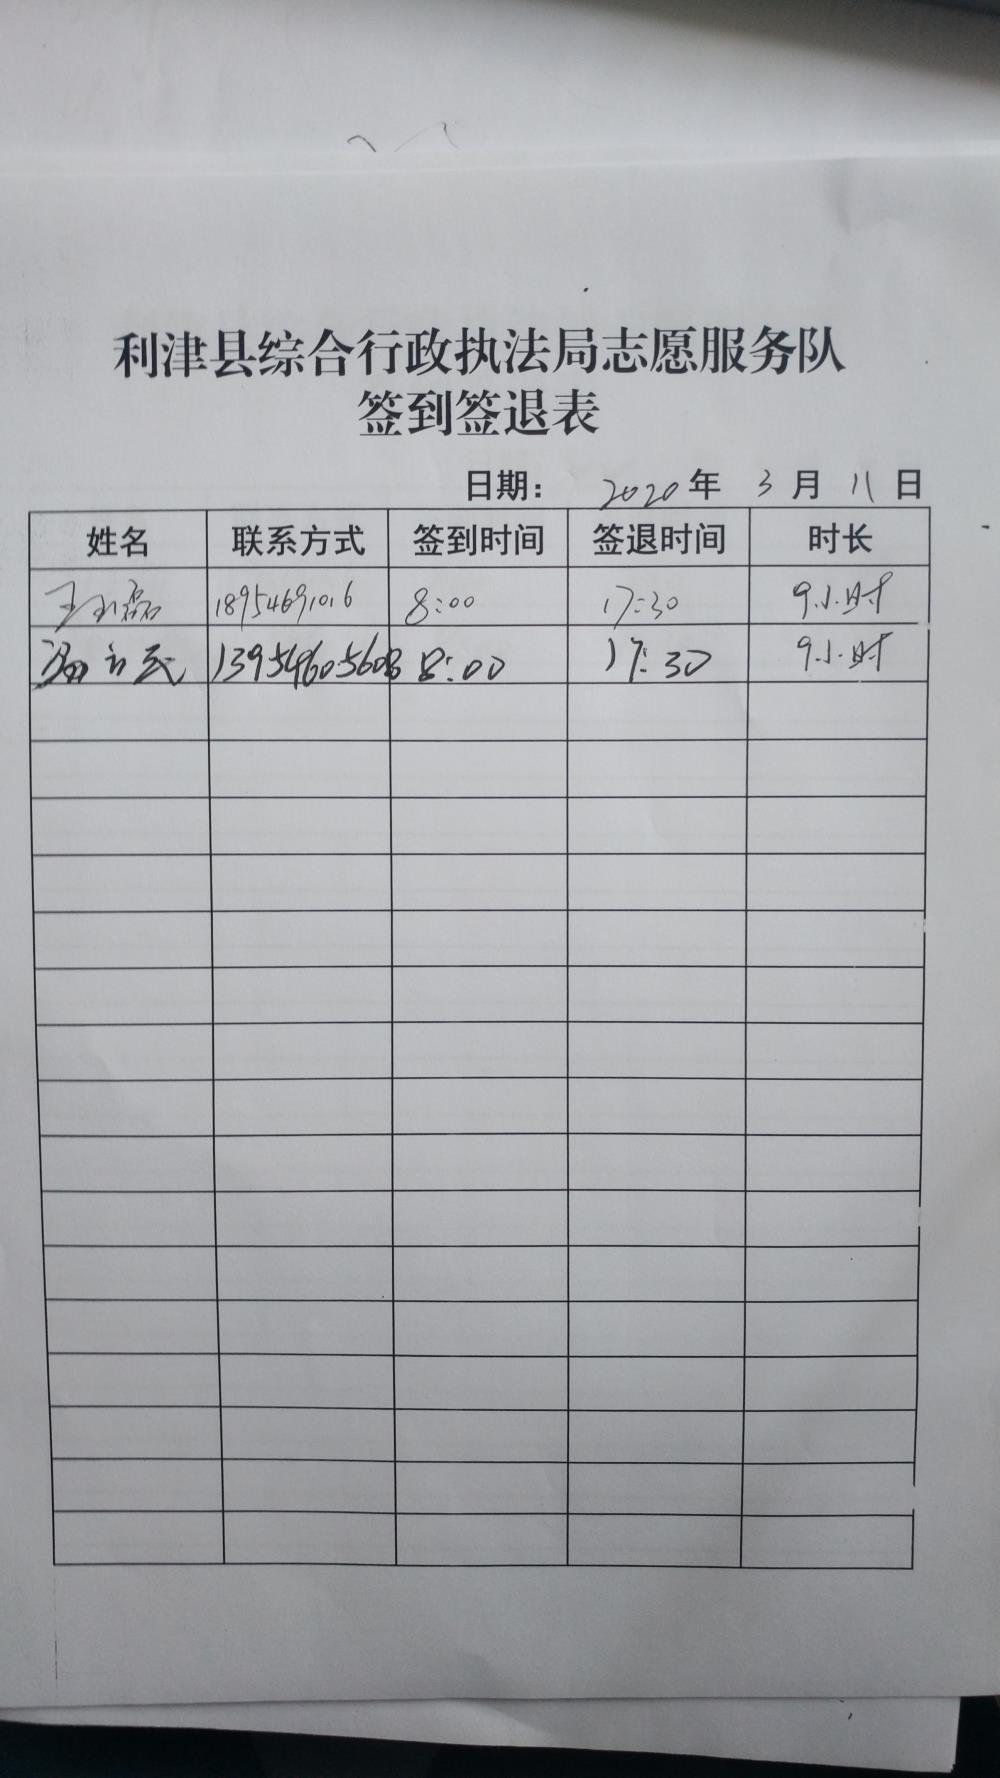 利津县综合行政执法局志愿服务队
签到签退表
日期： 2020 年 3 月 11 日
姓名 联系方式 签到时间 签退时间 时长
18954691016 8:00 17:30 9小时
8:00 17:30 9小时